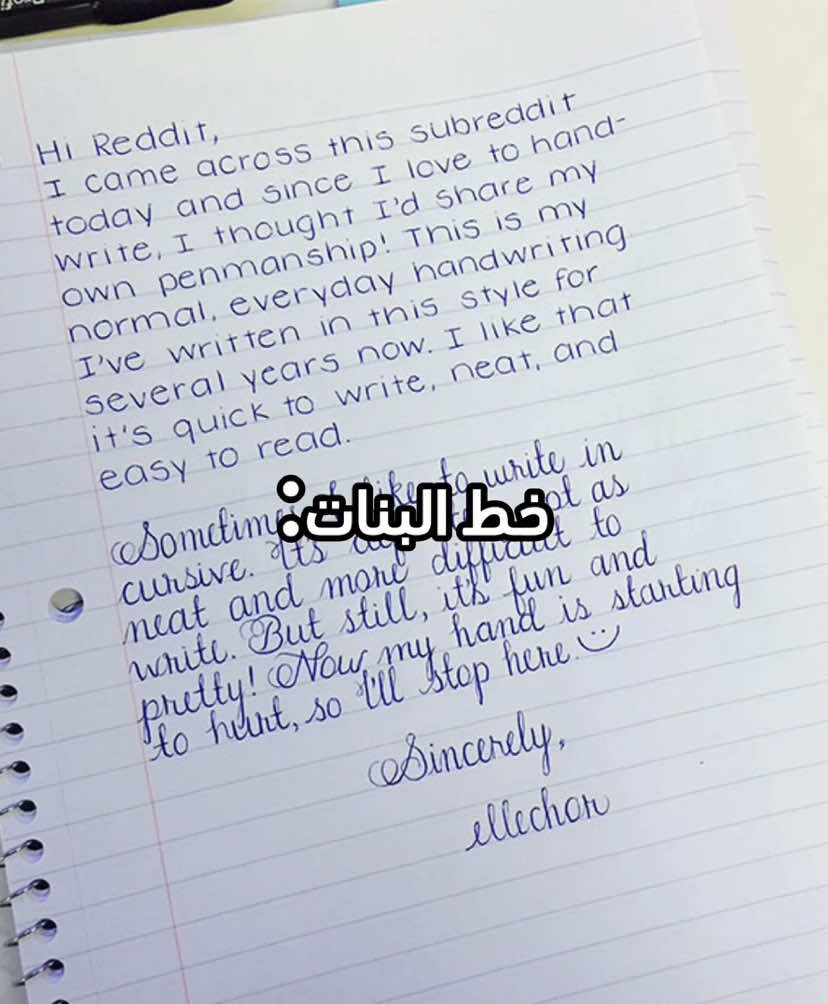 Hi Reddit,
I came across this subreddit
today and since I love to hand-
write, I thought I'd share my
own penmanship! This is my
normal, everyday handwriting
I've written in this style for
several years now. I like that
it's quick to write, neat, and
easy to read.
Sometimes I like to write in
خط البنات:
cursive. It's as
neat and more difficult to
write. But still, it's fun and
pretty! Now my hand is starting
to hurt, so I'll stop here.
Sincerely,
ellechor